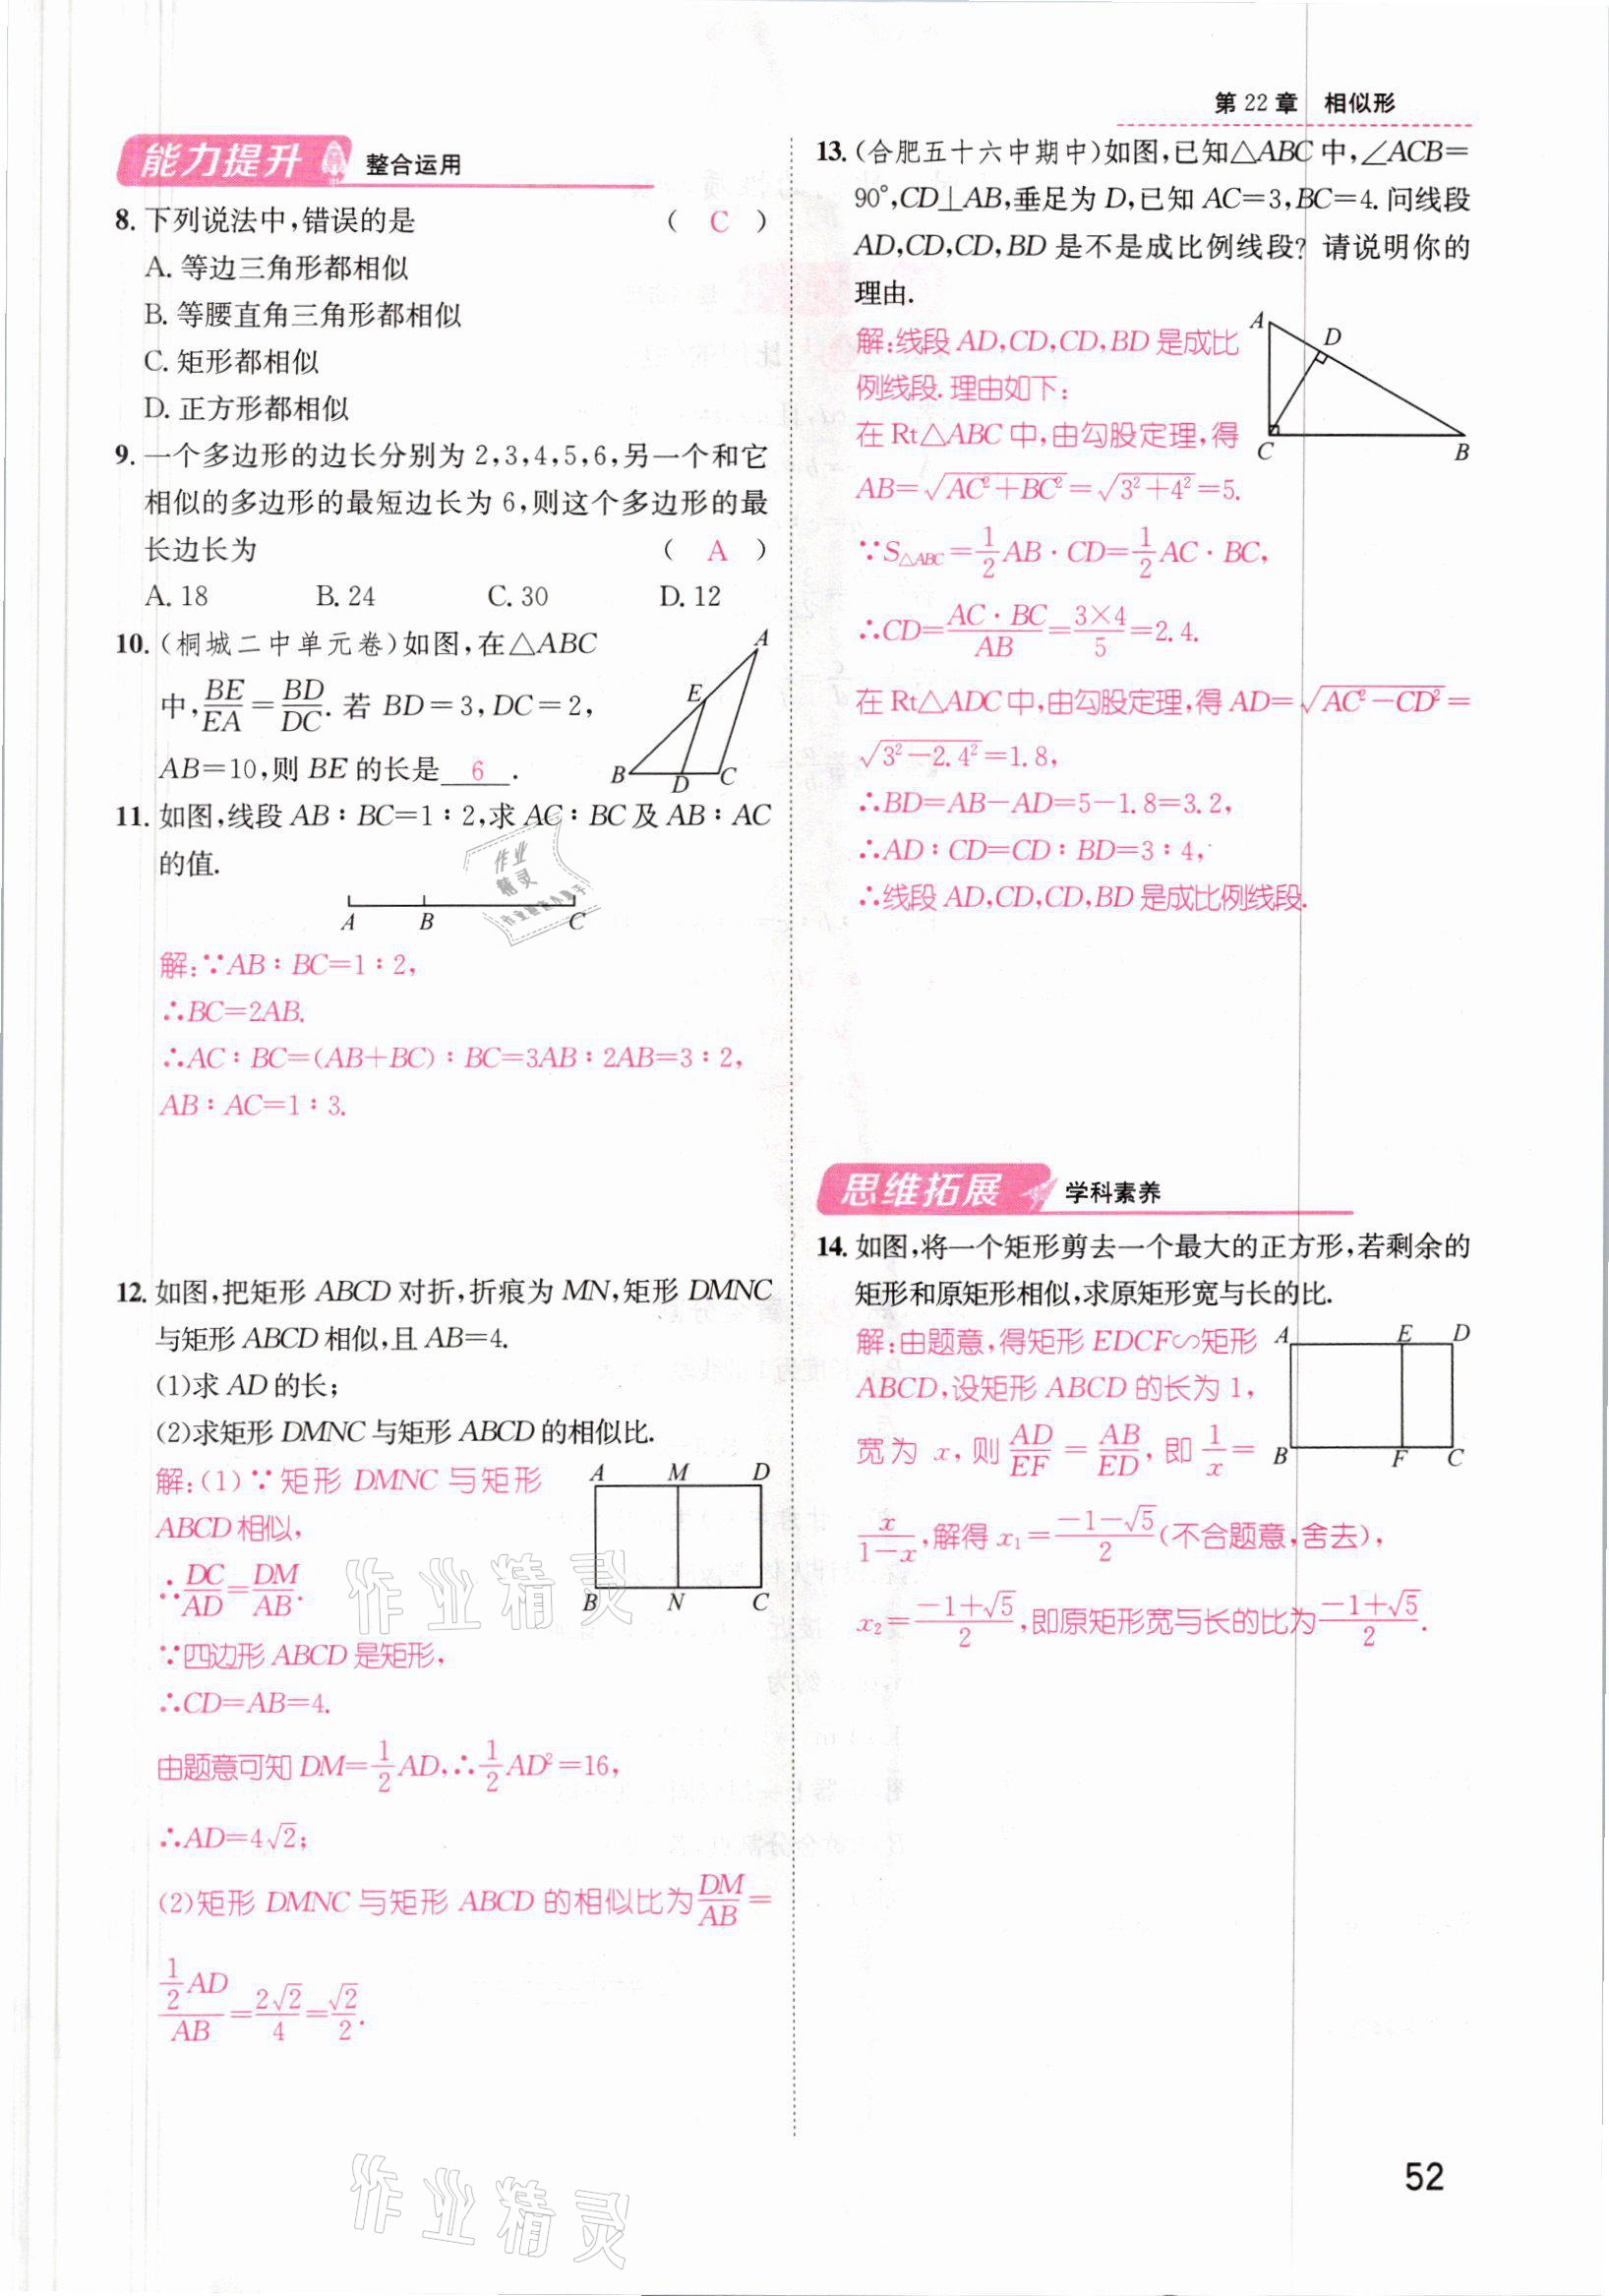 第 22 章　相似形
能力提升 整合运用
8. 下列说法中,错误的是　( C )
A. 等边三角形都相似
B. 等腰直角三角形都相似
C. 矩形都相似
D. 正方形都相似
9. 一个多边形的边长分别为 2,3,4,5,6,另一个和它
相似的多边形的最短边长为 6,则这个多边形的最
长边长为　( A )
A. 18　B. 24　C. 30　D. 12
10. (桐城二中单元卷)如图,在△ABC
中, BE/EA = BD/DC. 若 BD=3,DC=2,
AB=10,则 BE 的长是 6 .
A
E
B D C
11. 如图,线段 AB∶BC=1∶2,求 AC∶BC 及 AB∶AC
的值.
A B C
解:∵AB∶BC=1∶2,
∴BC=2AB.
∴AC∶BC=(AB+BC)∶BC=3AB∶2AB=3∶2,
AB∶AC=1∶3.
12. 如图,把矩形 ABCD 对折,折痕为 MN,矩形 DMNC
与矩形 ABCD 相似,且 AB=4.
(1)求 AD 的长;
(2)求矩形 DMNC 与矩形 ABCD 的相似比.
解:(1)∵矩形 DMNC 与矩形
ABCD 相似,
∴DC/AD=DM/AB.
A M D
B N C
∵四边形 ABCD 是矩形,
∴CD=AB=4.
由题意可知 DM=1/2 AD,∴1/2 AD²=16,
∴AD=4√2;
(2)矩形 DMNC 与矩形 ABCD 的相似比为 DM/AB=
(1/2 AD)/AB=2√2/4=√2/2.
13. (合肥五十六中期中)如图,已知△ABC 中,∠ACB=
90°,CD⊥AB,垂足为 D,已知 AC=3,BC=4. 问线段
AD,CD,CD,BD 是不是成比例线段? 请说明你的
理由.
A
D
C B
解:线段 AD,CD,CD,BD 是成比
例线段. 理由如下:
在 Rt△ABC 中,由勾股定理,得
AB=√(AC²+BC²)=√(3²+4²)=5.
∵S△ABC=1/2 AB·CD=1/2 AC·BC,
∴CD=AC·BC/AB=3×4/5=2.4.
在 Rt△ADC 中,由勾股定理,得 AD=√(AC²−CD²)=
√(3²−2.4²)=1.8,
∴BD=AB−AD=5−1.8=3.2,
∴AD∶CD=CD∶BD=3∶4,
∴线段 AD,CD,CD,BD 是成比例线段.
思维拓展 学科素养
14. 如图,将一个矩形剪去一个最大的正方形,若剩余的
矩形和原矩形相似,求原矩形宽与长的比.
解:由题意,得矩形 EDCF∽矩形
ABCD,设矩形 ABCD 的长为 1,
宽为 x,则 AD/EF=AB/ED,即 1/x=
A E D
B F C
x/(1−x),解得 x₁=(−1−√5)/2(不合题意,舍去),
x₂=(−1+√5)/2,即原矩形宽与长的比为(−1+√5)/2.
作业精灵
作业精灵
作业精灵
52